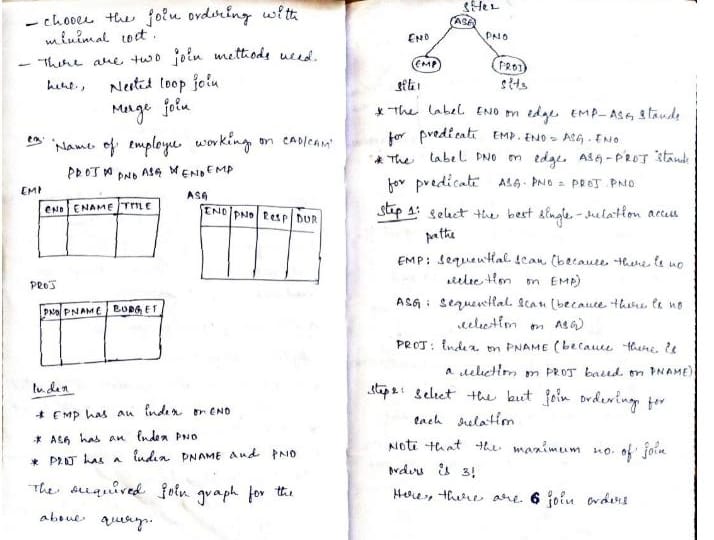 - choose the join ordering with
minimal cost.
- There are two join methods used.
here, Nested loop join
Merge join
ex: 'Name of employee working on CAD/CAM'
PROJ ⋈ PNO ASG ⋈ ENO EMP
EMP
ENO ENAME TITLE
ASG
ENO PNO RESP DUR
PROJ
PNO PNAME BUDGET
Index
* EMP has an index on ENO
* ASG has an index PNO
* PROJ has a index PNAME and PNO
The required join graph for the
above query.
site2
ASG
ENO PNO
EMP PROJ
site1 site3
* The label ENO on edge EMP-ASG stands
for predicate EMP.ENO = ASG.ENO
* The label PNO on edge ASG-PROJ stands
for predicate ASG.PNO = PROJ.PNO
Step 1: select the best single-relation access
paths
EMP: sequential scan (because there is no
selection on EMP)
ASG: sequential scan (because there is no
selection on ASG)
PROJ: index on PNAME (because there is
a selection on PROJ based on PNAME)
Step 2: select the best join ordering for
each relation
Note that the maximum no. of join
orders is 3!
Here, there are 6 join orders